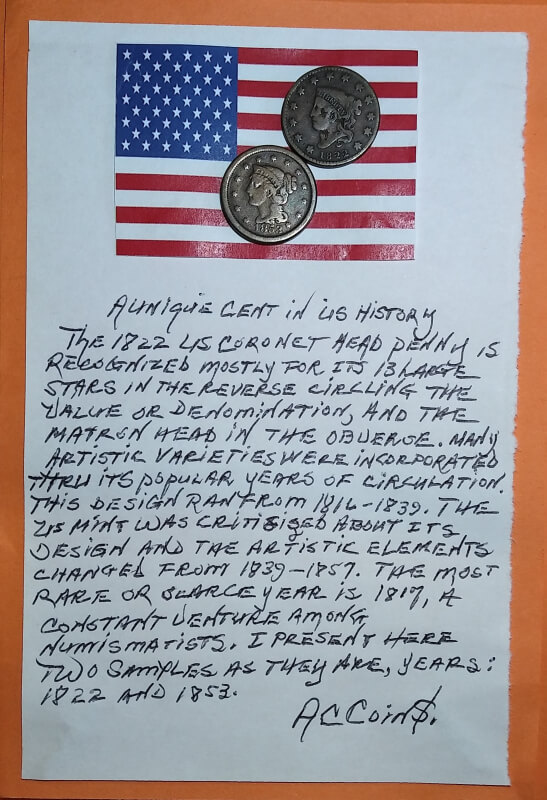 1822
1853
A UNIQUE CENT IN US HISTORY
THE 1822 US CORONET HEAD PENNY IS
RECOGNIZED MOSTLY FOR ITS 13 LARGE
STARS IN THE REVERSE CIRCLING THE
VALUE OR DENOMINATION, AND THE
MATRON HEAD IN THE OBVERSE. MANY
ARTISTIC VARIETIES WERE INCORPORATED
THRU ITS POPULAR YEARS OF CIRCULATION.
THIS DESIGN RAN FROM 1816-1839. THE
US MINT WAS CRITISIZED ABOUT ITS
DESIGN AND THE ARTISTIC ELEMENTS
CHANGED FROM 1839-1857. THE MOST
RARE OR SCARCE YEAR IS 1817, A
CONSTANT VENTURE AMONG
NUMISMATISTS. I PRESENT HERE
TWO SAMPLES AS THEY ARE, YEARS:
1822 AND 1853.
ACCoin$.